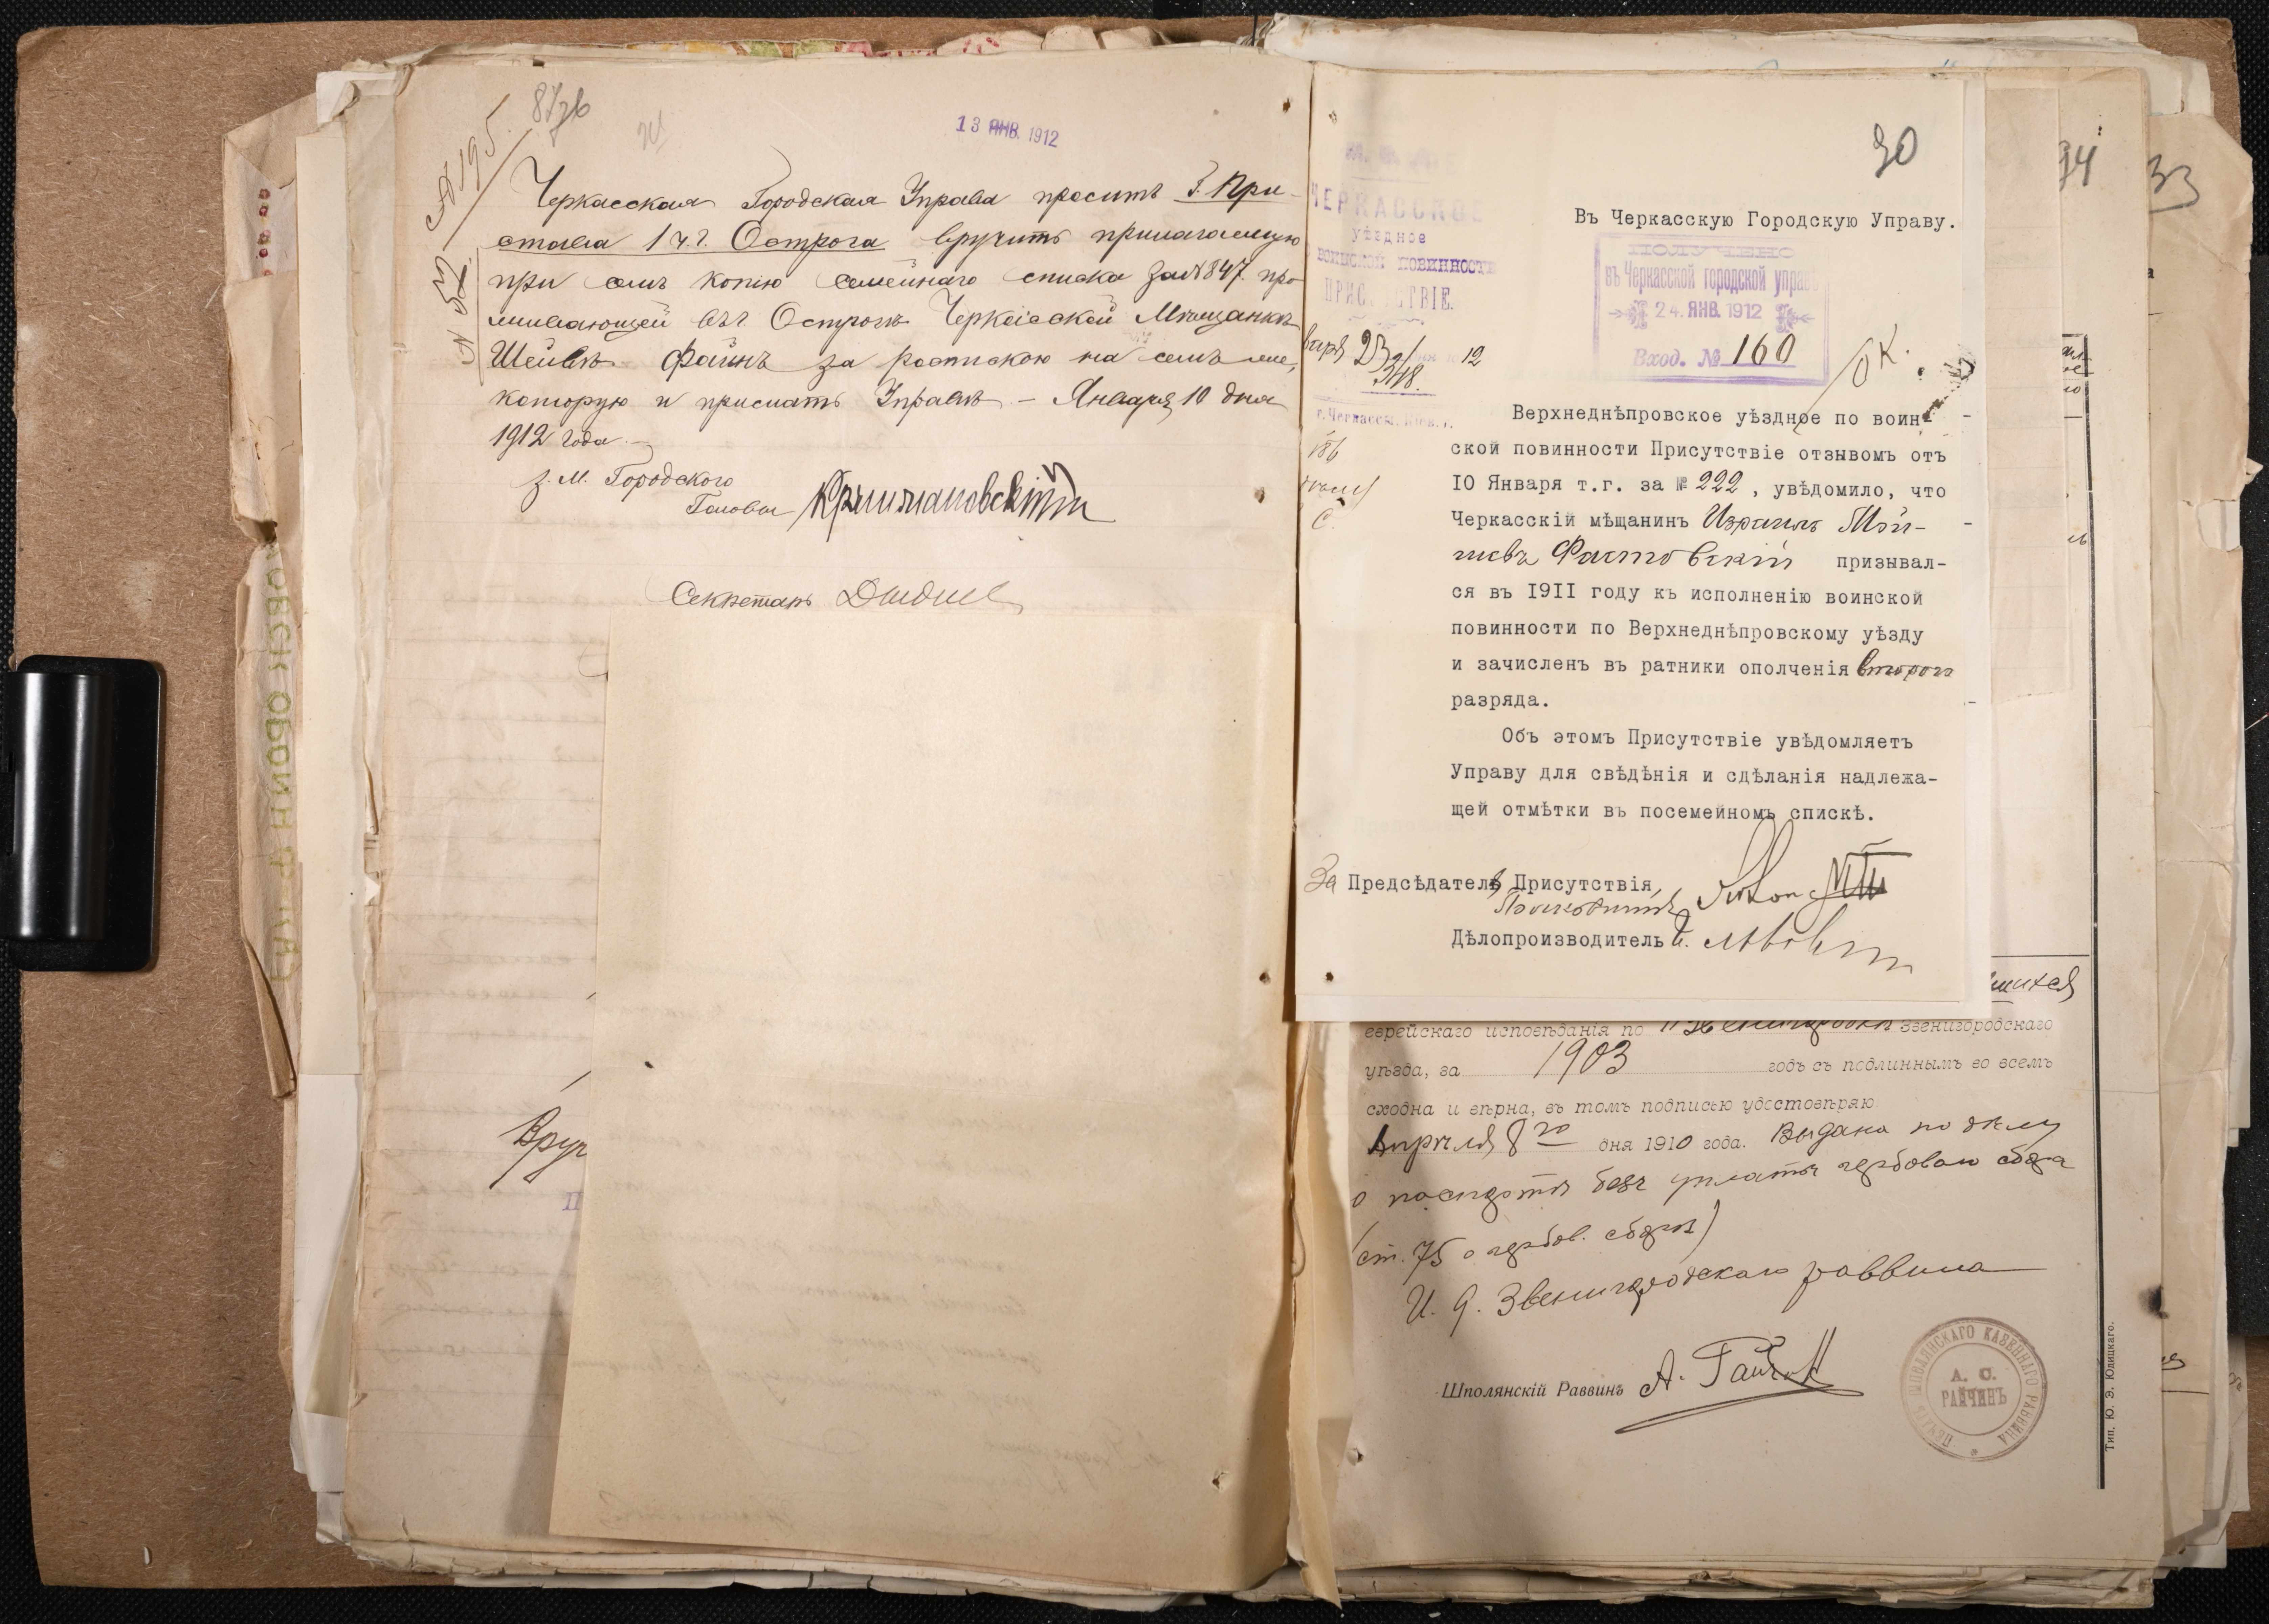 87зв
№ 195.
№ 53
13 ЯНВ. 1912
Черкасская Городская Управа проситъ Г. При-
става 1 ч. г. Острога вручить прилагаемую
при семъ копію семейнаго списка за № 847. про
живающей въ г. Острогѣ Черкасской Мѣщанкѣ
Шейвѣ Файнъ за роспискою на семъ же,
которую и прислать Управѣ. – Января 10 дня
1912 года.
з. м. Городского
Головы
Секретарь
Вруч
30
94
33
ЧЕРКАССКОЕ
уѣздное
ВОИНСКОЙ ПОВИННОСТИ
ПРИСУТСТВІЕ.
варя 23 12
318.
г. Черкассы, Кіев. г.
Въ Черкасскую Городскую Управу.
ПОЛУЧЕНО
въ Черкасской городской управѣ
24. ЯНВ. 1912
Вход. № 160
Верхнеднѣпровское уѣздное по воин-
ской повинности Присутствіе отзывомъ отъ
IO Января т.г. за № 222, увѣдомило, что
Черкасскій мѣщанинъ Израиль Мой-
шевъ Фастовскій призывал-
ся въ I9II году къ исполненію воинской
повинности по Верхнеднѣпровскому уѣзду
и зачисленъ въ ратники ополченія второго
разряда.
Объ этомъ Присутствіе увѣдомляетъ
Управу для свѣдѣнія и сдѣланія надлежа-
щей отмѣтки въ посемейномъ спискѣ.
За Предсѣдателя Присутствія,
Полковникъ
Дѣлопроизводитель И. Львов
вшихся
еврейскаго исповѣданія по г. Звенигородкѣ Звенигородскаго
уѣзда, за 1903 годъ съ подлиннымъ во всемъ
сходна и вѣрна, въ томъ подписью удостовѣряю
Апрѣля 8го дня 1910 года. Выдана по дѣлу
о сиротѣ безъ уплаты гербоваго сбора
(ст. 75 о гербов. сборѣ)
И. д. Звенигородскаго раввина
Шполянскій Раввинъ А. Райчин
ПЕЧАТЬ ШПОЛЯНСКАГО КАЗЕННАГО РАВВИНА
А. С.
РАЙЧИНЪ
Тип. Ю. Э. Юдицкаго.